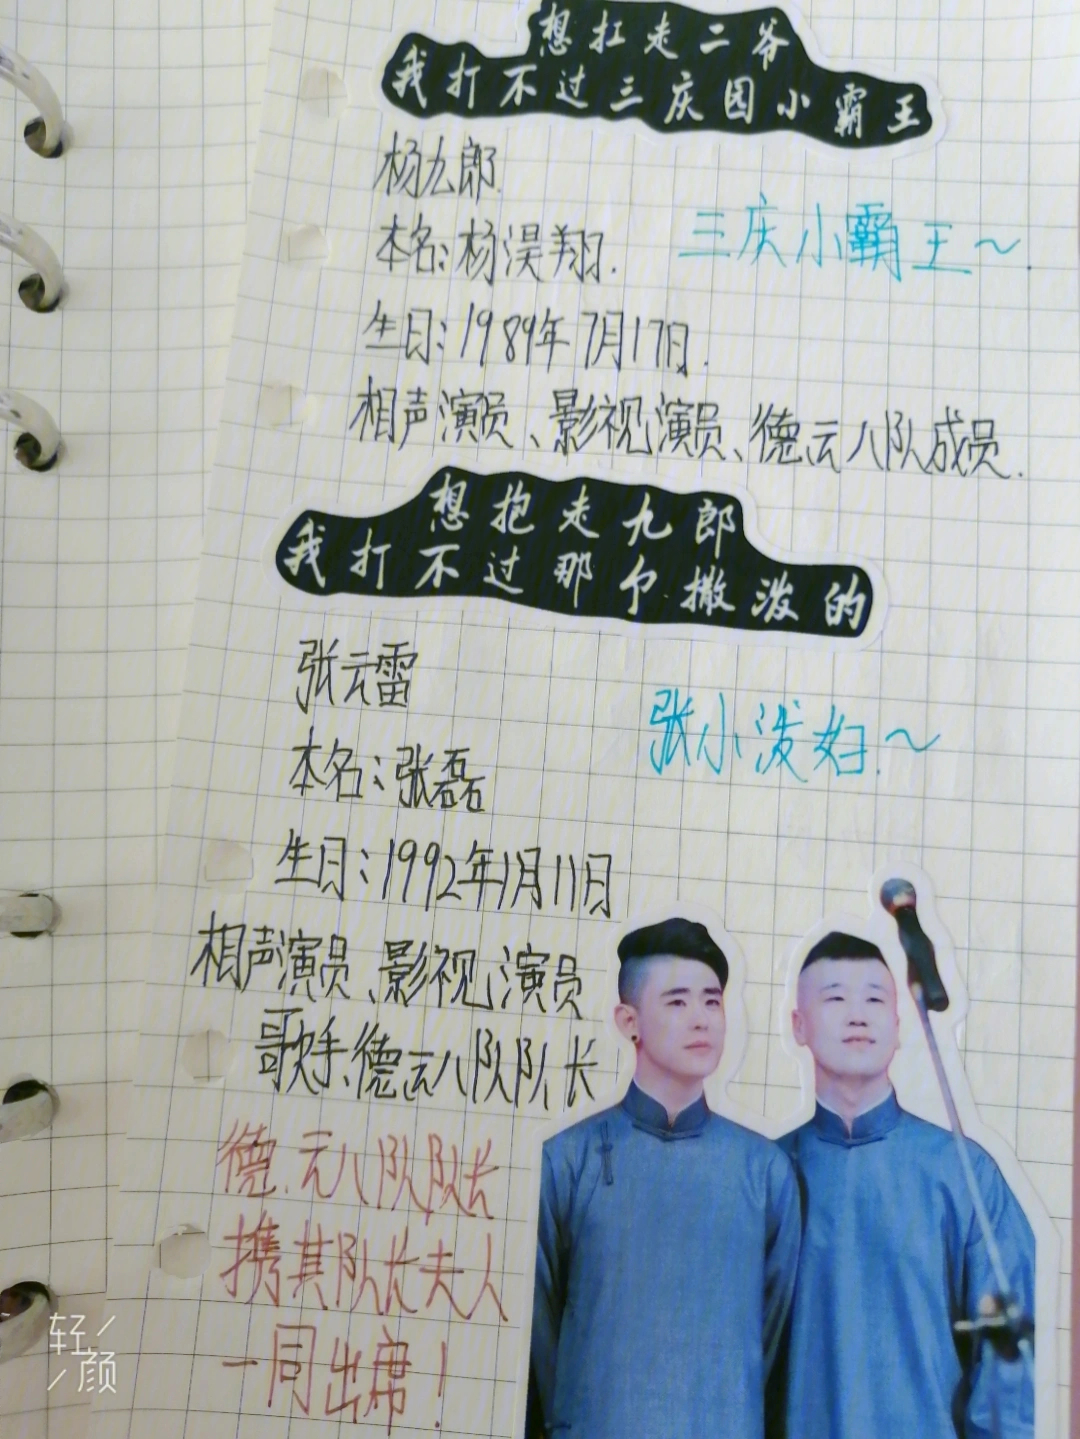 想扛走二爷
我打不过三庆园小霸王
杨九郎
本名:杨淏翔.
三庆小霸王~.
生日:1989年7月17日.
相声演员、影视演员、德云八队成员.
想抱走九郎
我打不过那个撒泼的
张云雷
张小泼妇.~
本名:张磊
生日:1992年1月11日
相声演员、影视演员
歌手、德云八队队长
德云八队队长
携其队长夫人
一同出席!
轻
颜